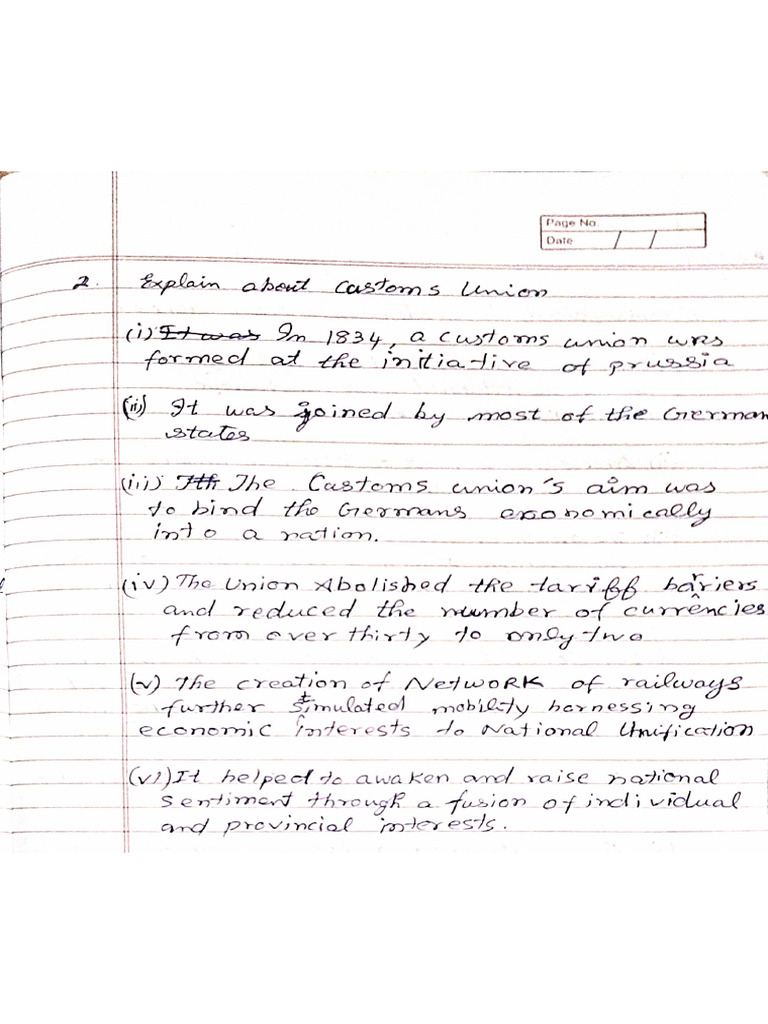 Page No.
Date / /
2. Explain about Customs Union
(i) It was In 1834, a customs union was
formed at the initiative of prussia
(ii) It was joined by most of the German
states
(iii) Tth The Customs union's aim was
to bind the Germans economically
into a nation.
(iv) The Union Abolished the tariff barriers
and reduced the number of currencies
from over thirty to only two
(v) The creation of NetwoRK of railways
further stimulated mobility harnessing
economic interests to National Unification
(vi) It helped to awaken and raise national
sentiment through a fusion of individual
and provincial interests.